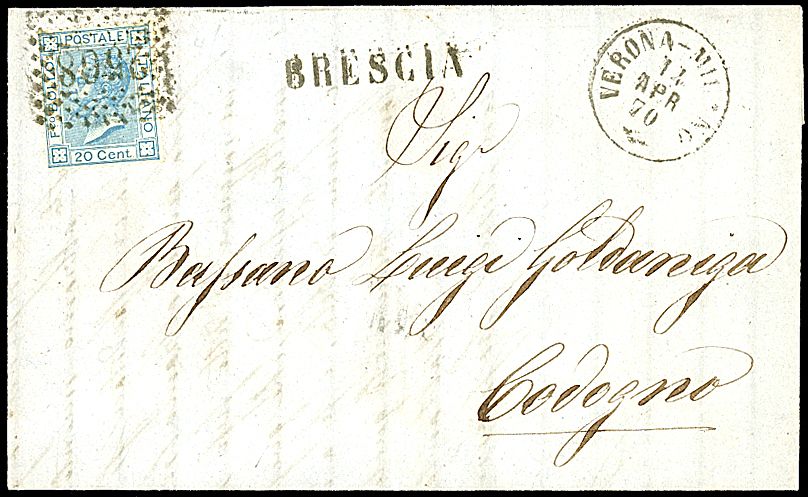 POSTALE
F.co BOLLO
ITALIANO
20 Cent.
BRESCIA
VERONA-MILANO
11
APR
70
Sig.r
Bassano Luigi Goldaniga
Codogno